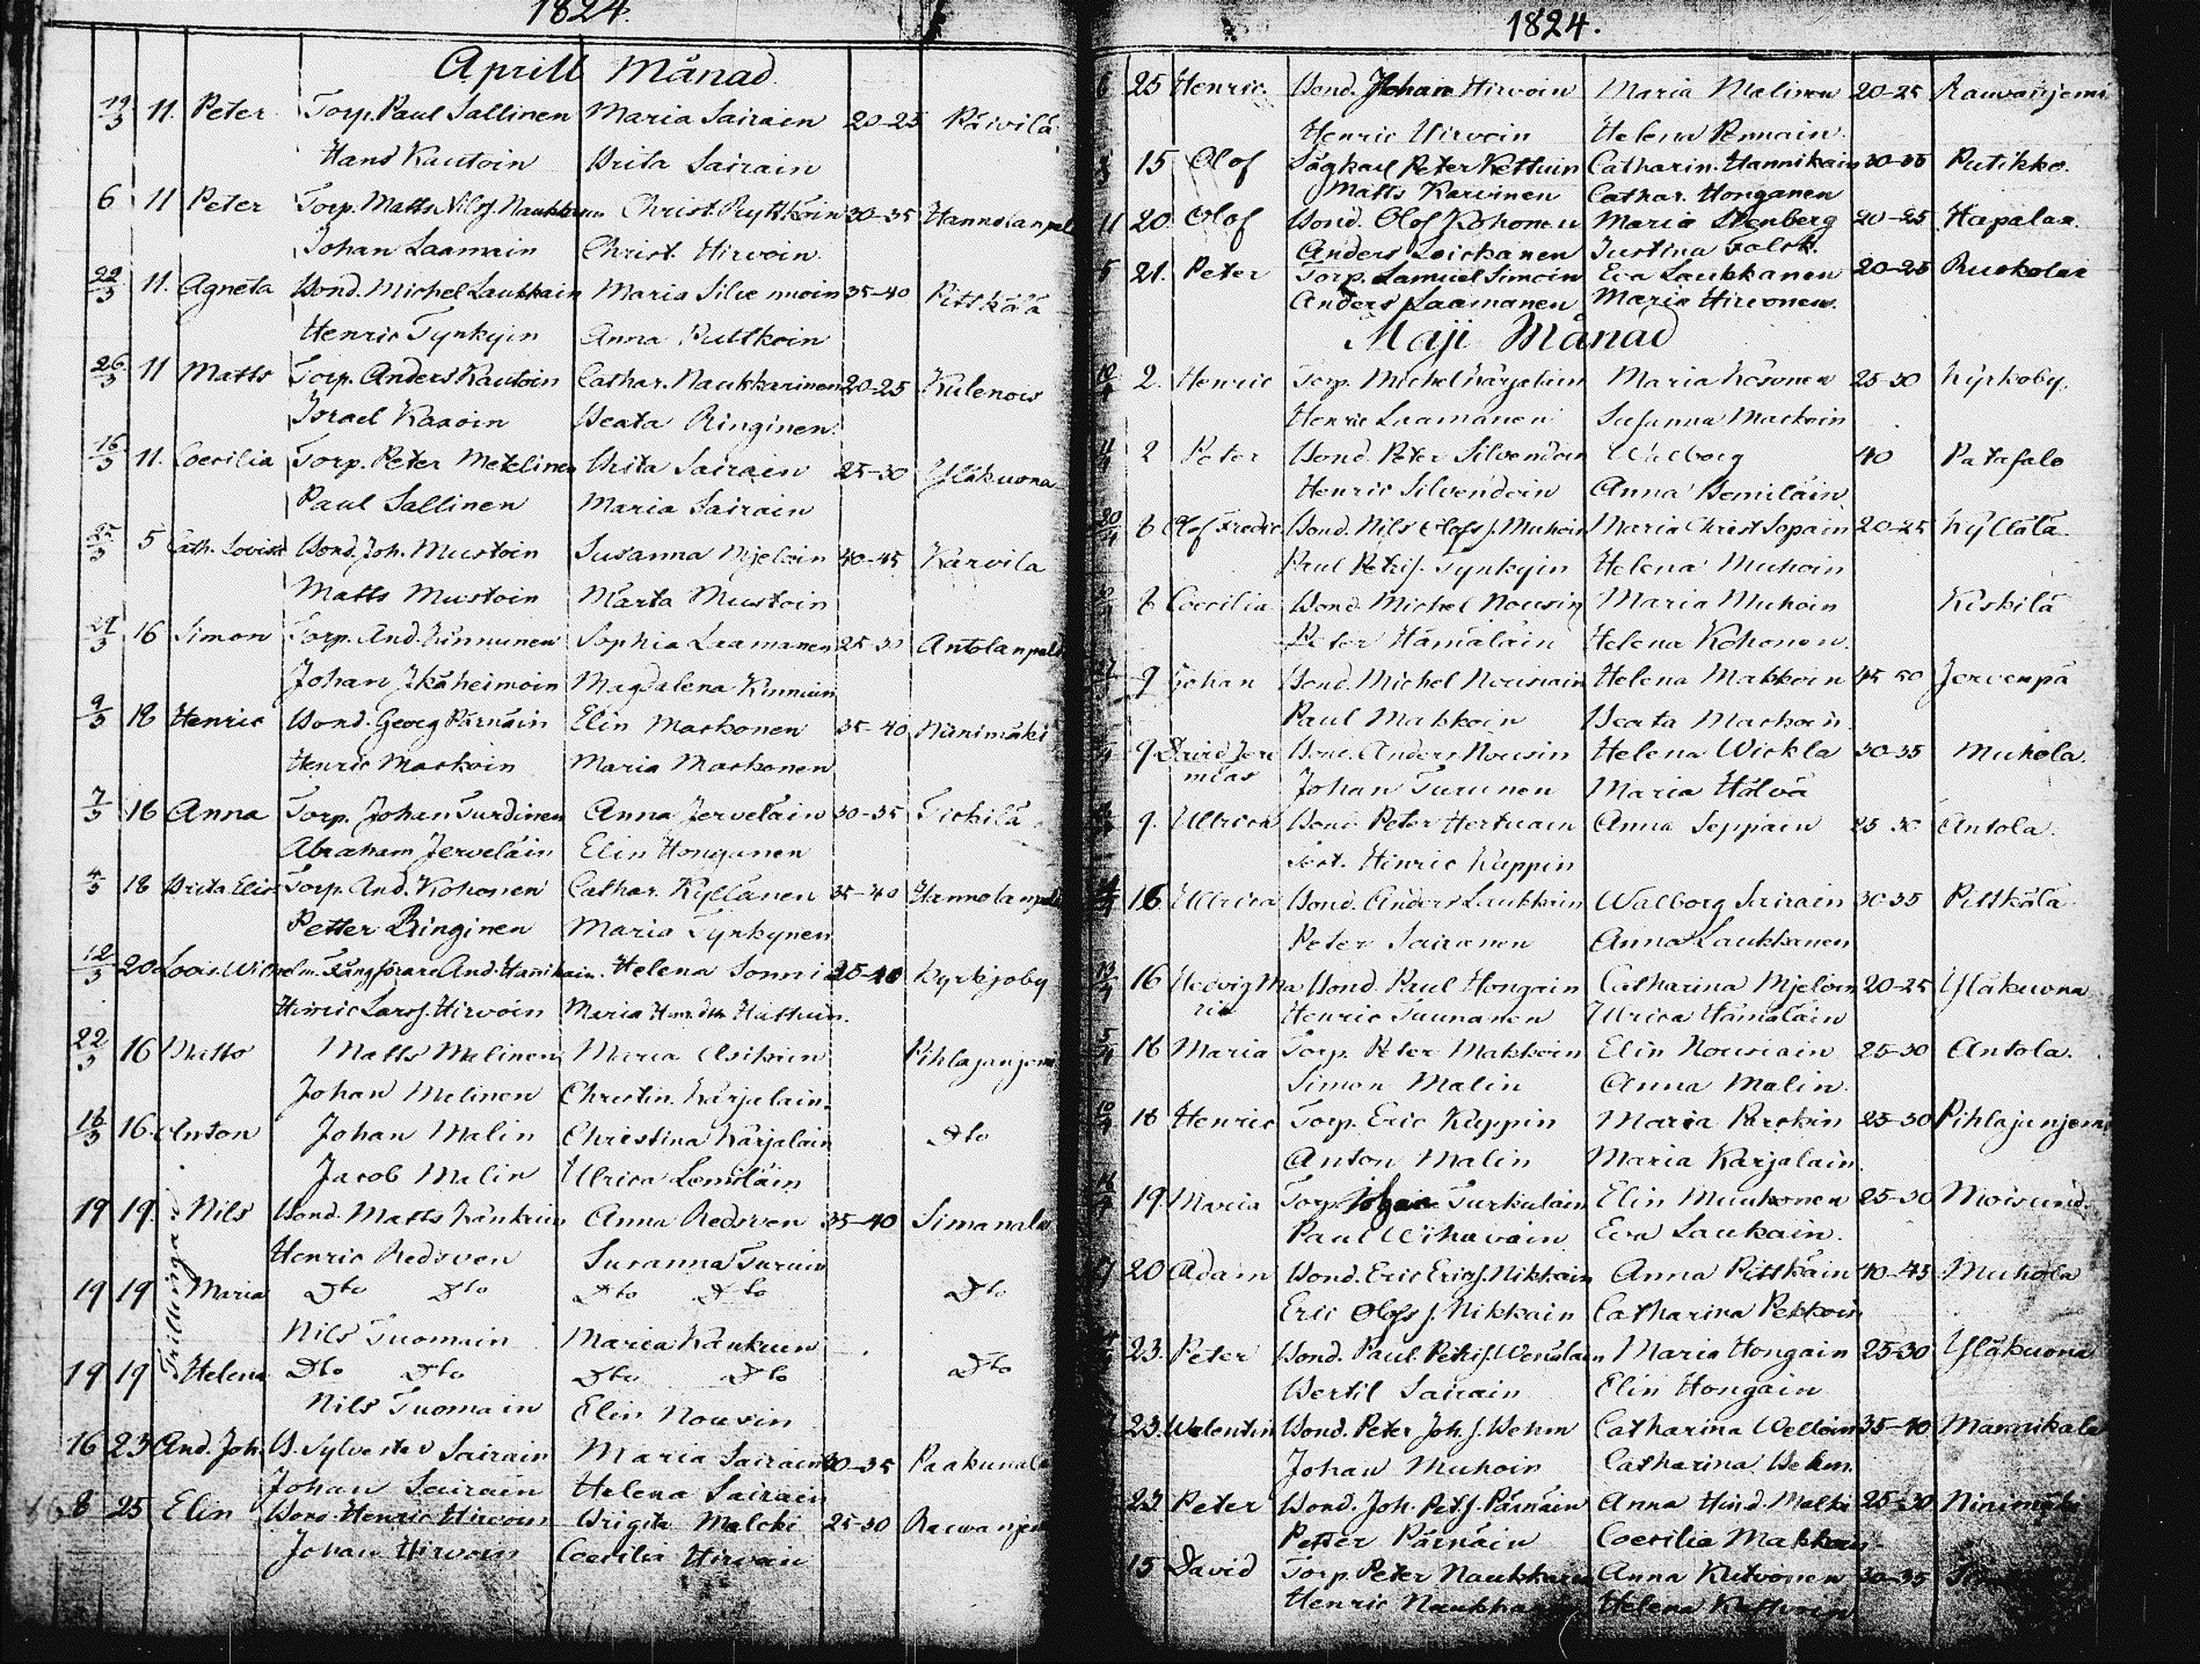 1824.
Aprill Månad
19/3 11. Peter Torp. Paul Sallinen Maria Sairain 20-25 Päivilä
Hans Kautoin Brita Sairain
6 11 Peter Torp. Matts Nilsf. Naukkarinen Christ. Pyttköin 30-35 Hannolanpelt
Johan Laamain Christ. Hirvoin
22/3 11. Agneta Bond. Michel Laukkain Maria Silvennoin 35-40 Pittkälä
Henric Tynkyin Anna Puttkoin
26/3 11 Matts Torp. Anders Kautoin Cathar. Naukkarinen 20-25 Kulenois
Israel Kaxoin Beata Ringinen
16/3 11. Coecilia Torp. Peter Metelinen Brita Sairain 25-30 Yläkuona
Paul Sallinen Maria Sairain
25/3 5 Cath. Lovisa Bond. Joh. Mustoin Susanna Mjeloin 40-45 Kärvilä
Matts Mustoin Märta Mustoin
21/3 16 Simon Torp. And. Kinnunen Sophia Laamanen 25-30 Antolanpelt
Johan Ikäheimoin Magdalena Kinnuin
9/3 18 Henric Bond. Georg Pärnäin Elin Maskonen 35-40 Niinimäki
Henric Maskoin Maria Maskonen
7/3 16 Anna Torp. Johan Turdinen Anna Jerveläin 30-35 Tiskilä
Abraham Jerveläin Elin Honganen
4/3 18 Brita Elis Torp. And. Kohonen Cathar. Kyllänen 35-40 Hannolanpelt
Petter Ringinen Maria Tynkynen
12/3 20 Lovis. Wilhelm. Fångförare And. Hannikain. Helena Sonni 35-40 Kyrkjoby
Henric Larsf. Hirvoin Maria Hattuin.
22/3 16 Matts Matts Malinen Maria Asikain Pihlajanjemi
Johan Malinen Christin. Kärjalain.
18/3 16. Anton Johan Malin Christina Kärjalain Dto
Jacob Malin Ulrica Lemiläin
Trillingar
19 19. Nils Bond. Matts Känkuin Anna Redsven 35-40 Simanala
Henric Redsven Susanna Turuin
19 19 Maria Dto Dto Dto Dto Dto
Nils Tuomain Maria Känkuin
19 19 Helena Dto Dto Dto Dto Dto
Nils Tuomain Elin Nousin
16 23 And. Joh. B. Sylvester Sairain Maria Sairain 30-35 Paakunala
Johan Sairain Helena Sairain
8 25 Elin Bond. Henric Hirvoin Brigita Malcki 25-30 Rauvanjemi
Johan Hirvoin Coecilia Hirvoin
1824.
6 25 Henric Bond. Johan Hirvoin Maria Malinen 20-25 Rauvanjemi
Henric Hirvoin Helena Pennain.
3 15 Olof Sågkarl Peter Kettuin Catharin. Hannikain 30-35 Putikko.
Matts Karvinen Cathar. Honganen
11 20. Olof Bond. Olof Kohonen Maria Stenberg 20-25 Hapalax.
Anders Loickanen Justina Falck.
5 21. Peter Torp. Samuel Simoin Eva Laukkanen 20-25 Ruokolax
Anders Laamanen Maria Hirvonen.
Maji Månad
10/4 2. Henric Torp. Michel Kärjelain Maria Kosonen 25-30 Kÿrkoby.
Henric Laamanen Susanna Maskoin
11/4 2 Peter Bond. Peter Silvendoin Walborg 40 Patasalo
Henric Silvendoin Anna Lemiläin
20/4 8 Olof Fredric Bond. Nils Olofs f. Muhoin Maria Christ Sopain 20-25 Kÿllälä
Paul Petrif. Tynkyin Helena Muhoin
8 Coecilia Bond. Michel Nousin Maria Muhoin Kiskilä
Peter Hämäläin Helena Kohonen.
9 Johan Bond. Michel Nousiain Helena Makkoin 45-50 Jervenpä
Paul Makkoin Beata Maskoin.
9 David Jeremias Bond. Anders Nousin Helena Wickla 30-35 Muhola.
Johan Turunen Maria Hälvä
9. Ullrica Bond. Peter Hertuain Anna Seppäin 25-30 Antola.
Hinric Kuppin
16 Ullrica Bond. Anders Laukkain Walborg Sairain 30-35 Pittkälä
Peter Sairanen Anna Laukkanen
13/4 16 Hedvig Maria Bond. Paul Hongain Catharina Mjeloin 20-25 Yläkuona
Henric Taunanen Ulrica Hämäläin
5/4 16 Maria Torp. Peter Makkoin Elin Nousiain 25-30 Antola.
Simon Malin Anna Malin.
10/4 18 Henric Torp. Eric Kuppin Maria Parckin 25-30 Pihlajanjemi
Anton Malin Maria Kärjalain.
18/4 19. Maria Torp. Johan Turkulain Elin Muukonen 25-30 Moisund.
Paul Wihavain Eva Laukain.
20 Adam Bond. Eric Ericsf. Nikkain Anna Pittkäin 40-45 Muhola
Eric Olofs f. Nikkain Catharina Pekkoin
23. Peter Bond. Paul Petrif. Wenäläin Maria Hongain 25-30 Yläkuona
Bertil Sairain Elin Hongain
23. Walentin Bond. Peter Joh. f. Behm Catharina Welloin 35-40 Mannikala
Johan Muhoin Catharina Behm.
23. Peter Bond. Joh. Pet. f. Pärnäin Anna Hind. Malki 25-30 Ninimäki
Petter Pärnäin Coecilia Makkoin.
15 David Torp. Peter Naukkarin Anna Kutvonen 30-35
Henric Naukkarin Helena Kuttvoin